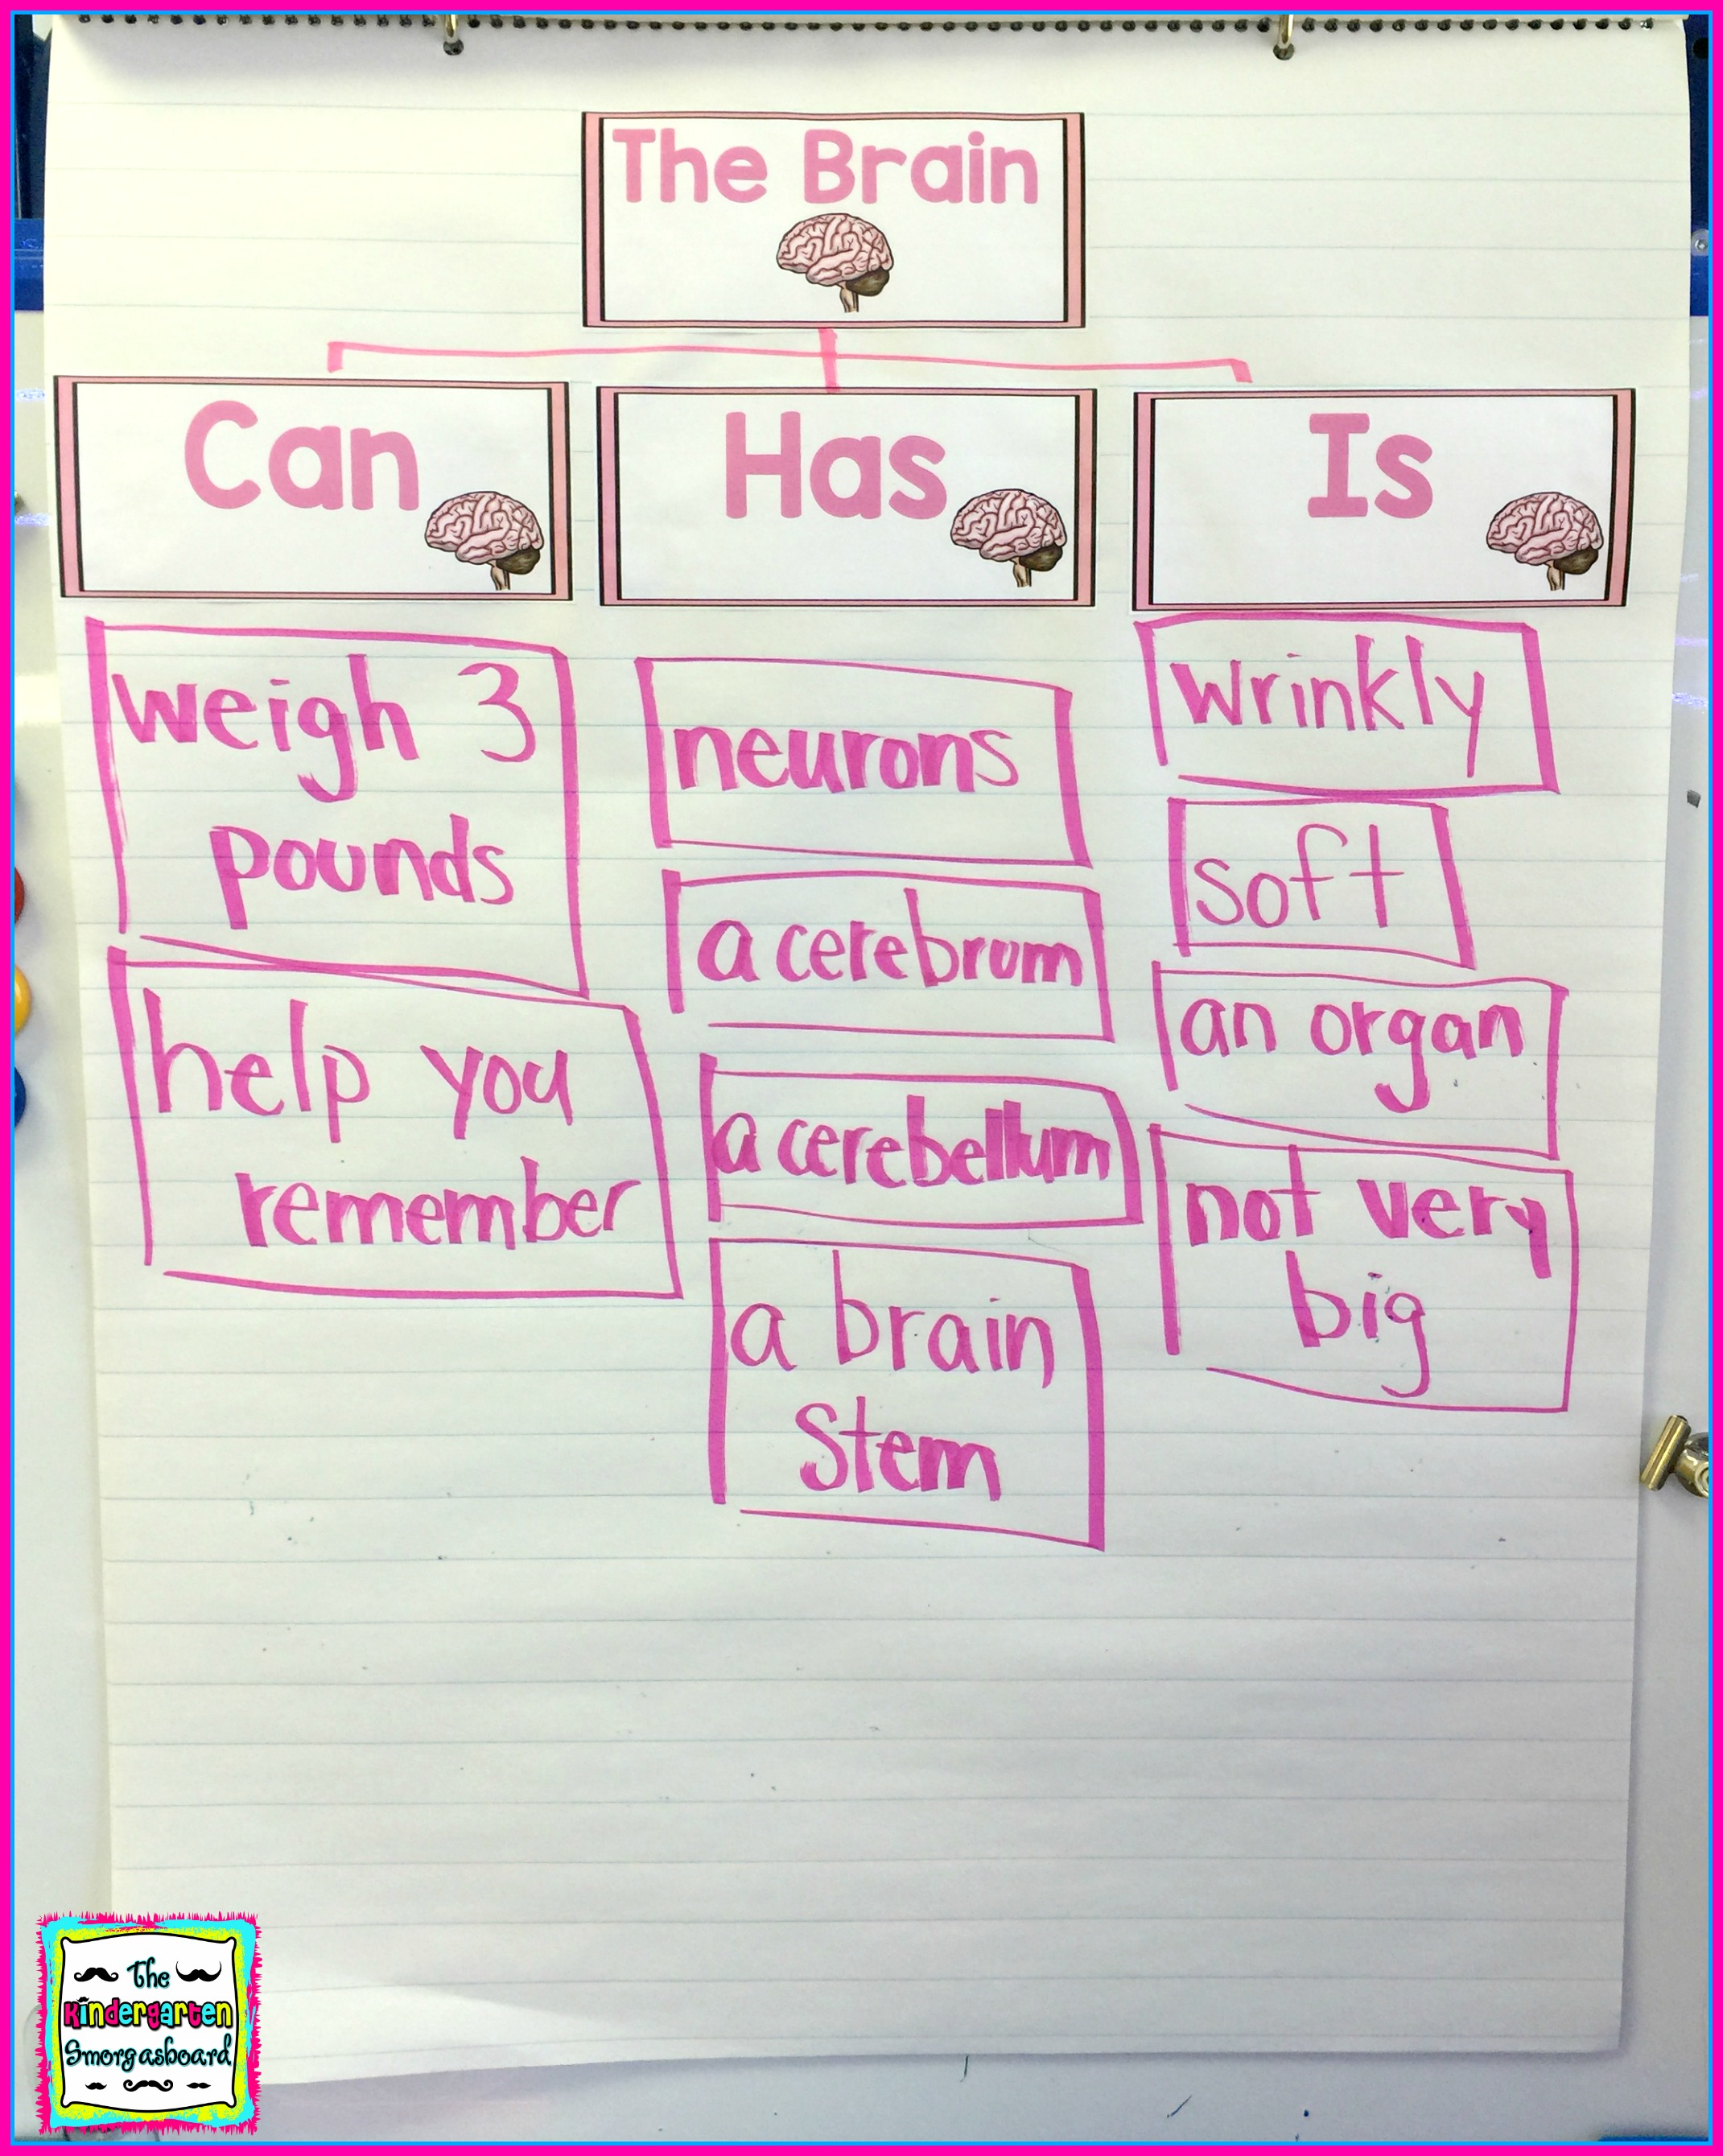 The Brain
Can
Has
Is
weigh 3
pounds
help you
remember
neurons
a cerebrum
a cerebellum
a brain
Stem
wrinkly
soft
an organ
not very
big
The
Kindergarten
Smorgasboard